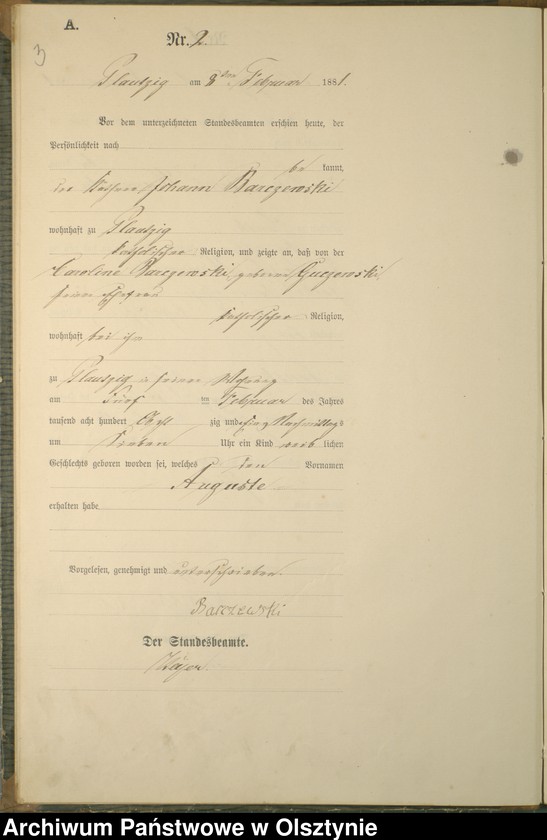 A.
3
Nr. 2.
Plautzig am 8ten Februar 1881.
Vor dem unterzeichneten Standesbeamten erschien heute, der
Persönlichkeit nach
be kannt,
der Johann Barczewski
wohnhaft zu Plautzig
katholischer Religion, und zeigte an, daß von der
Caroline Barczewski, geborene Guczewski
seiner Ehefrau
katholischer Religion,
wohnhaft bei ihm
zu Plautzig in seiner Wohnung
am fünf ten Februar des Jahres
tausend acht hundert acht zig und eins Nachmittags
um sieben Uhr ein Kind weib lichen
Geschlechts geboren worden sei, welches den Vornamen
Auguste
erhalten habe
Vorgelesen, genehmigt und unterschrieben.
Barczewski
Der Standesbeamte.
Archiwum Państwowe w Olsztynie